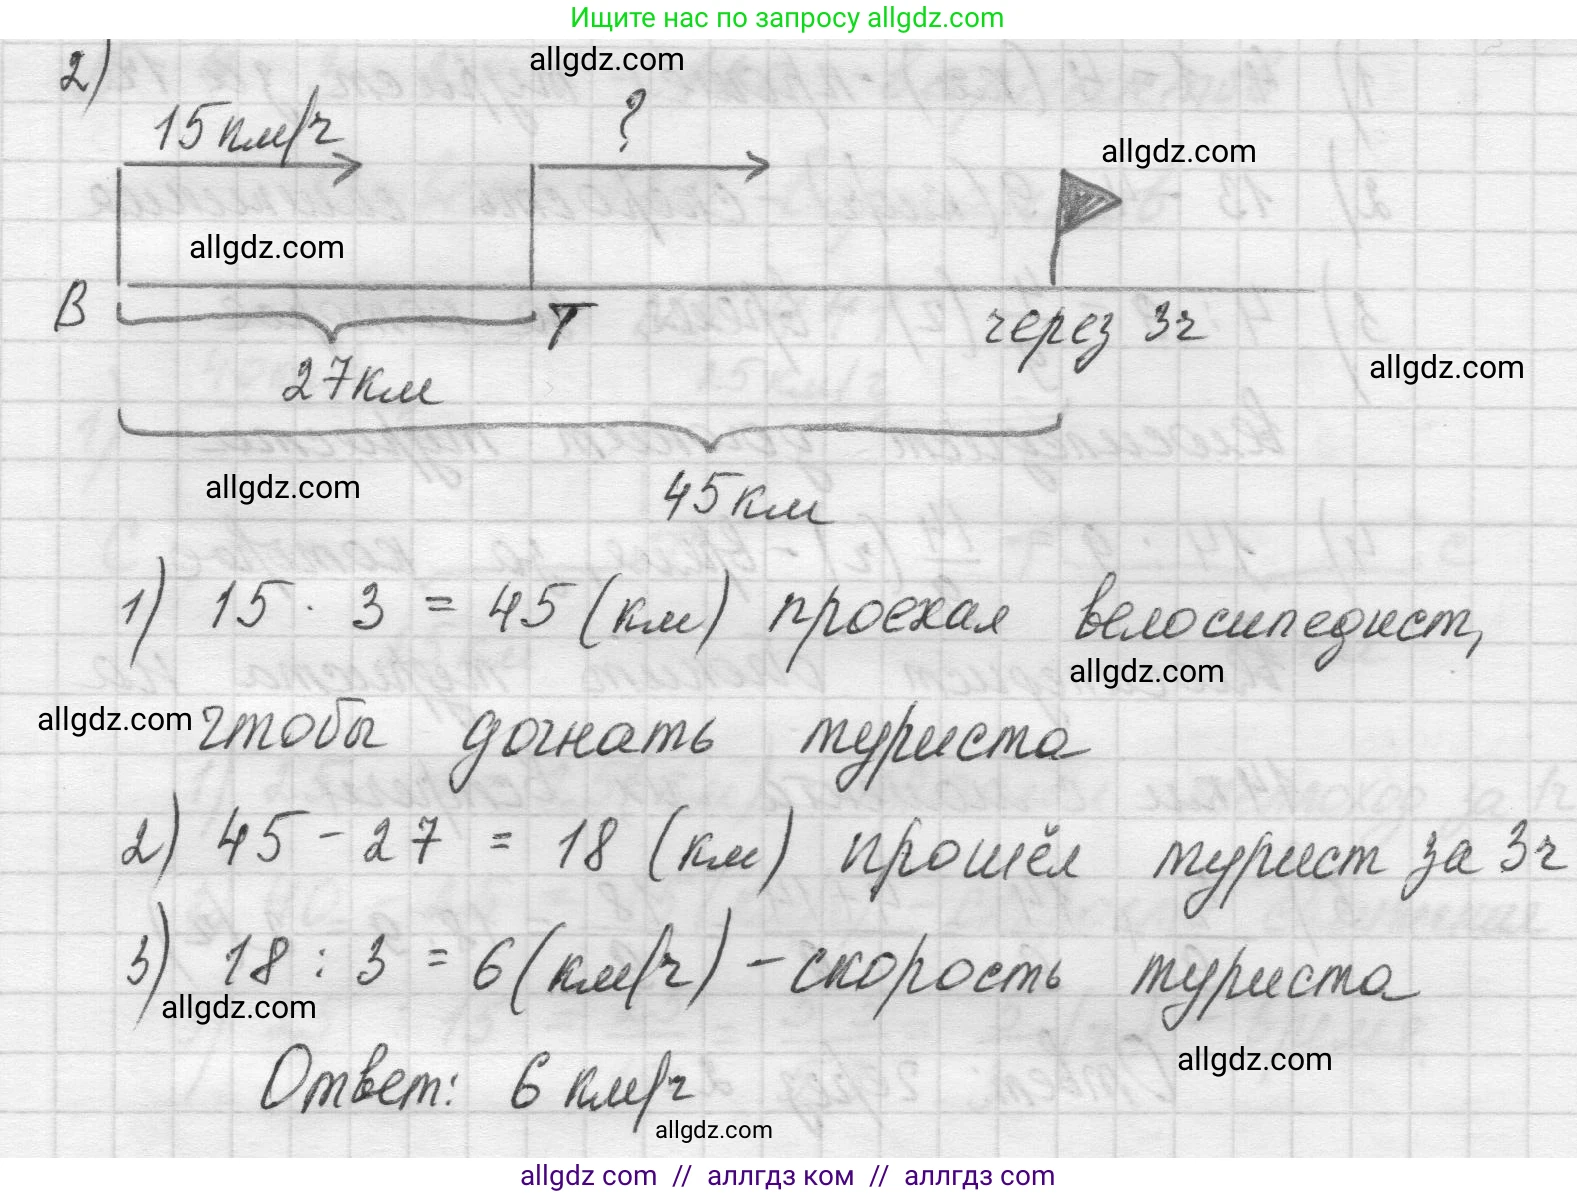 Ищите нас по запросу allgdz.com
2)
allgdz.com
15 км/ч
?
allgdz.com
allgdz.com
В
Т
через 3ч
27 км
allgdz.com
allgdz.com
45 км
1) 15 · 3 = 45 (км) проехал велосипедист,
allgdz.com
allgdz.com
чтобы догнать туриста
2) 45 - 27 = 18 (км) прошёл турист за 3ч
3) 18 : 3 = 6 (км/ч) - скорость туриста
allgdz.com
Ответ: 6 км/ч
allgdz.com
allgdz.com
allgdz com // аллгдз ком // аллгдз com